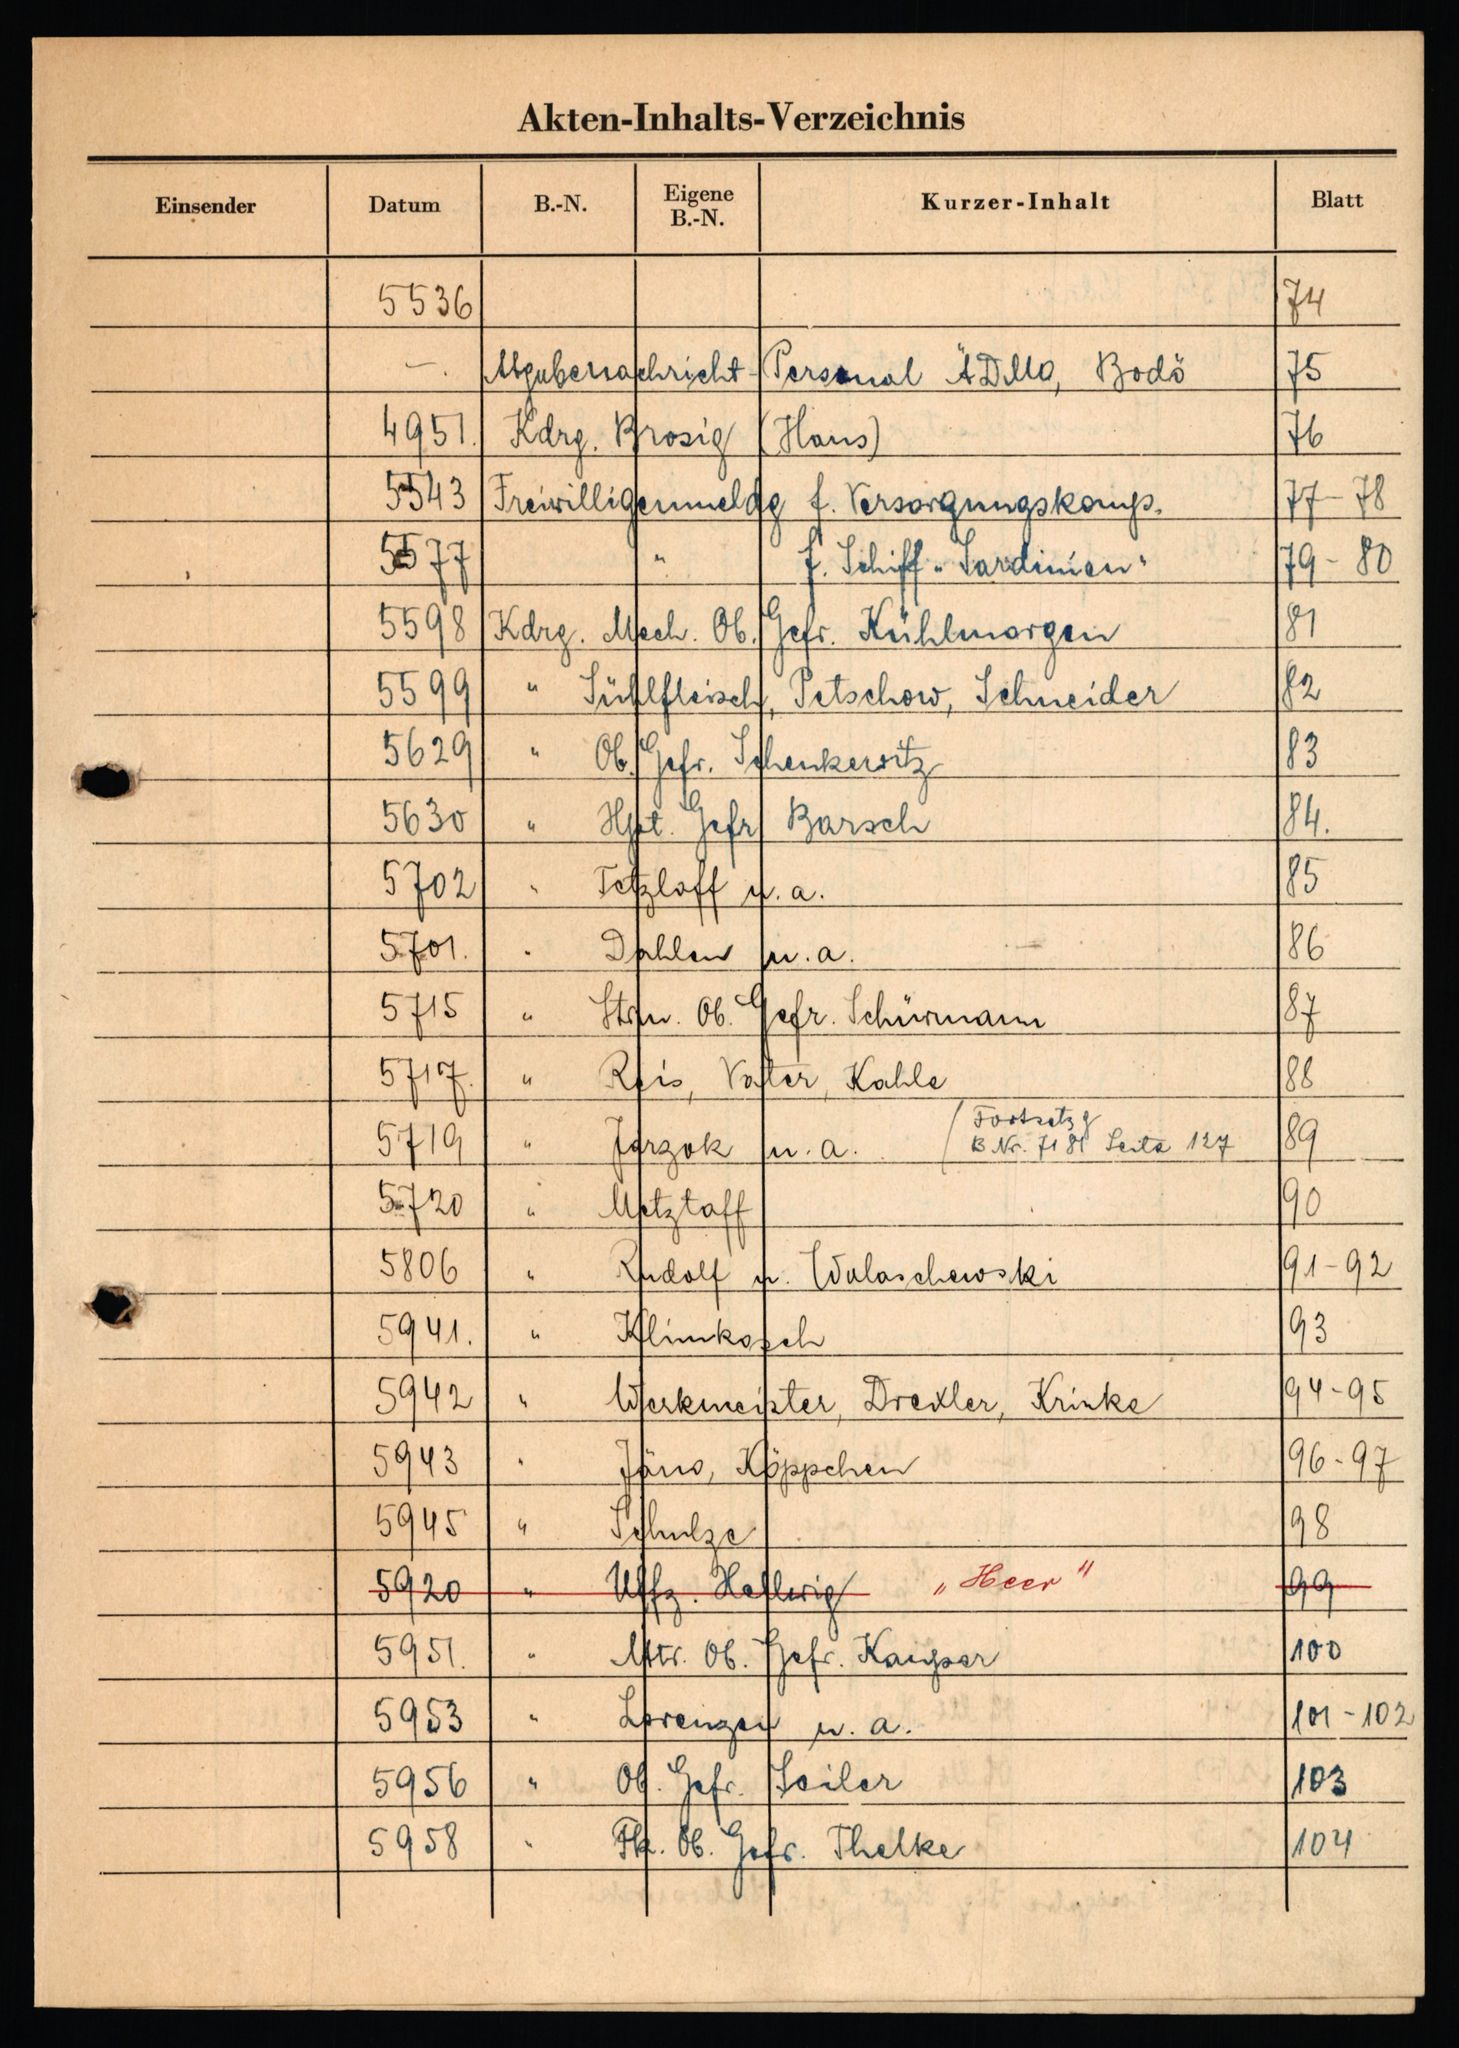 Akten-Inhalts-Verzeichnis
Einsender Datum B.-N. Eigene B.-N. Kurzer-Inhalt Blatt
5536 74
— Abgabenachricht-Personal Bodö 75
4951. Kdrg. Brosig (Hans) 76
5543 Freiwilligenmeldg f. Versorgungskomp. 77-78
5577 " f. Schiff "Sardinien" 79-80
5598 Kdrg. Mech. Ob. Gefr. Kühlmorgen 81
5599 " Sühlfleisch, Petschow, Schneider 82
5629 " Ob. Gefr. Schenkewitz 83
5630 " Hpt. Gefr Barsch 84.
5702 " Tetzlaff u.a. 85
5701. " Dahlen u.a. 86
5715 " Strm. Ob. Gefr. Schürmann 87
5717. " Reis, Vater, Kahle 88
5719 " Jarzok u.a. (Fortsetzg 89
B Nr. 7181 Seite 127
5720 " Metztaff 90
5806 " Rudolf u. Walaschewski 91-92
5941. " Klimkosch 93
5942 " Werkmeister, Drexler, Krinke 94-95
5943 " Jäns, Köppchen 96-97
5945 " Schulze 98
5920 " Uffz. Hellwig "Heer" 99
5951. " Mtr. Ob. Gefr. Kamper 100
5953 " Lorenzen u.a. 101-102
5956 " Ob. Gefr. Seiler 103
5958 " Fk. Ob. Gefr. Thelke 104